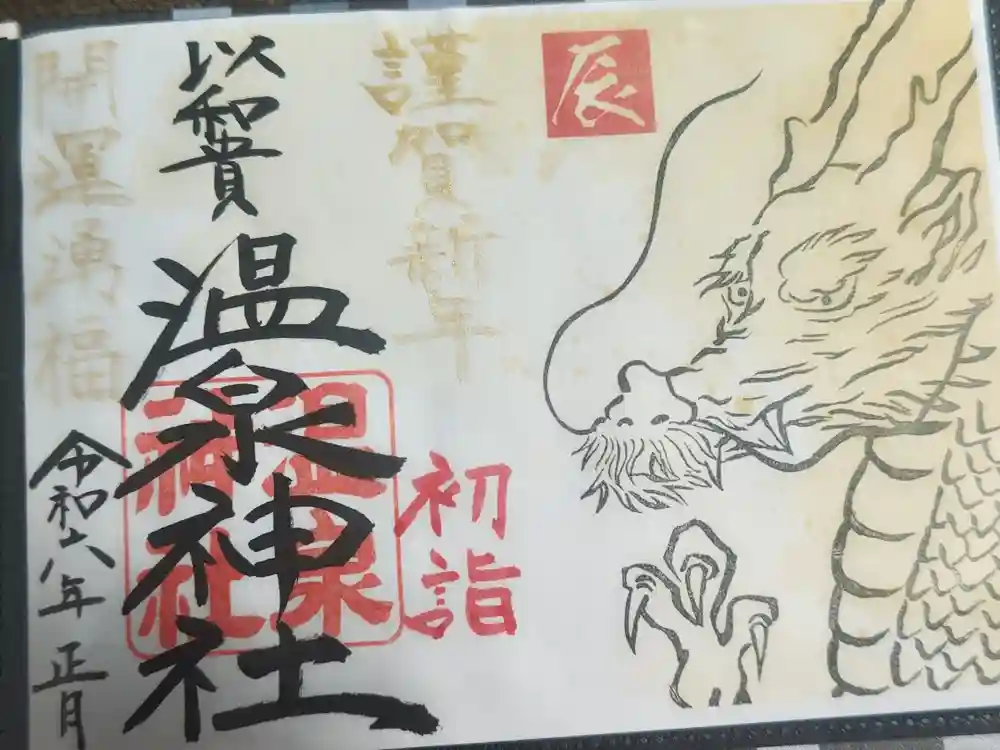 辰
謹賀新年
初詣
以和貴
温泉神社
温泉
神社
開運湧福
令和六年正月